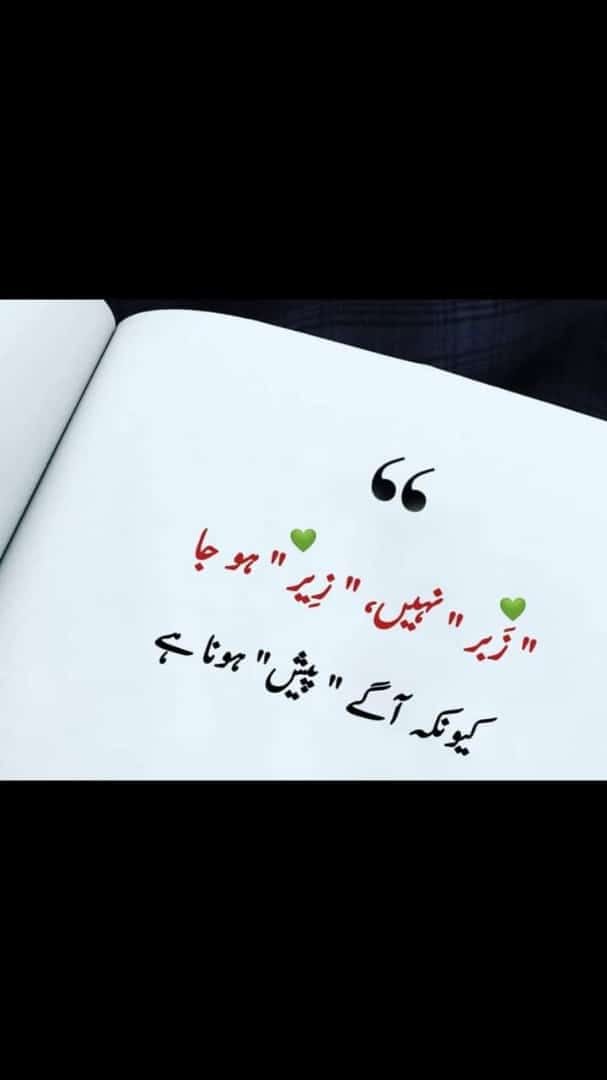 "زَبر" نہیں، "زِیر" ہو جا
کیونکہ آگے "پیش" ہونا ہے